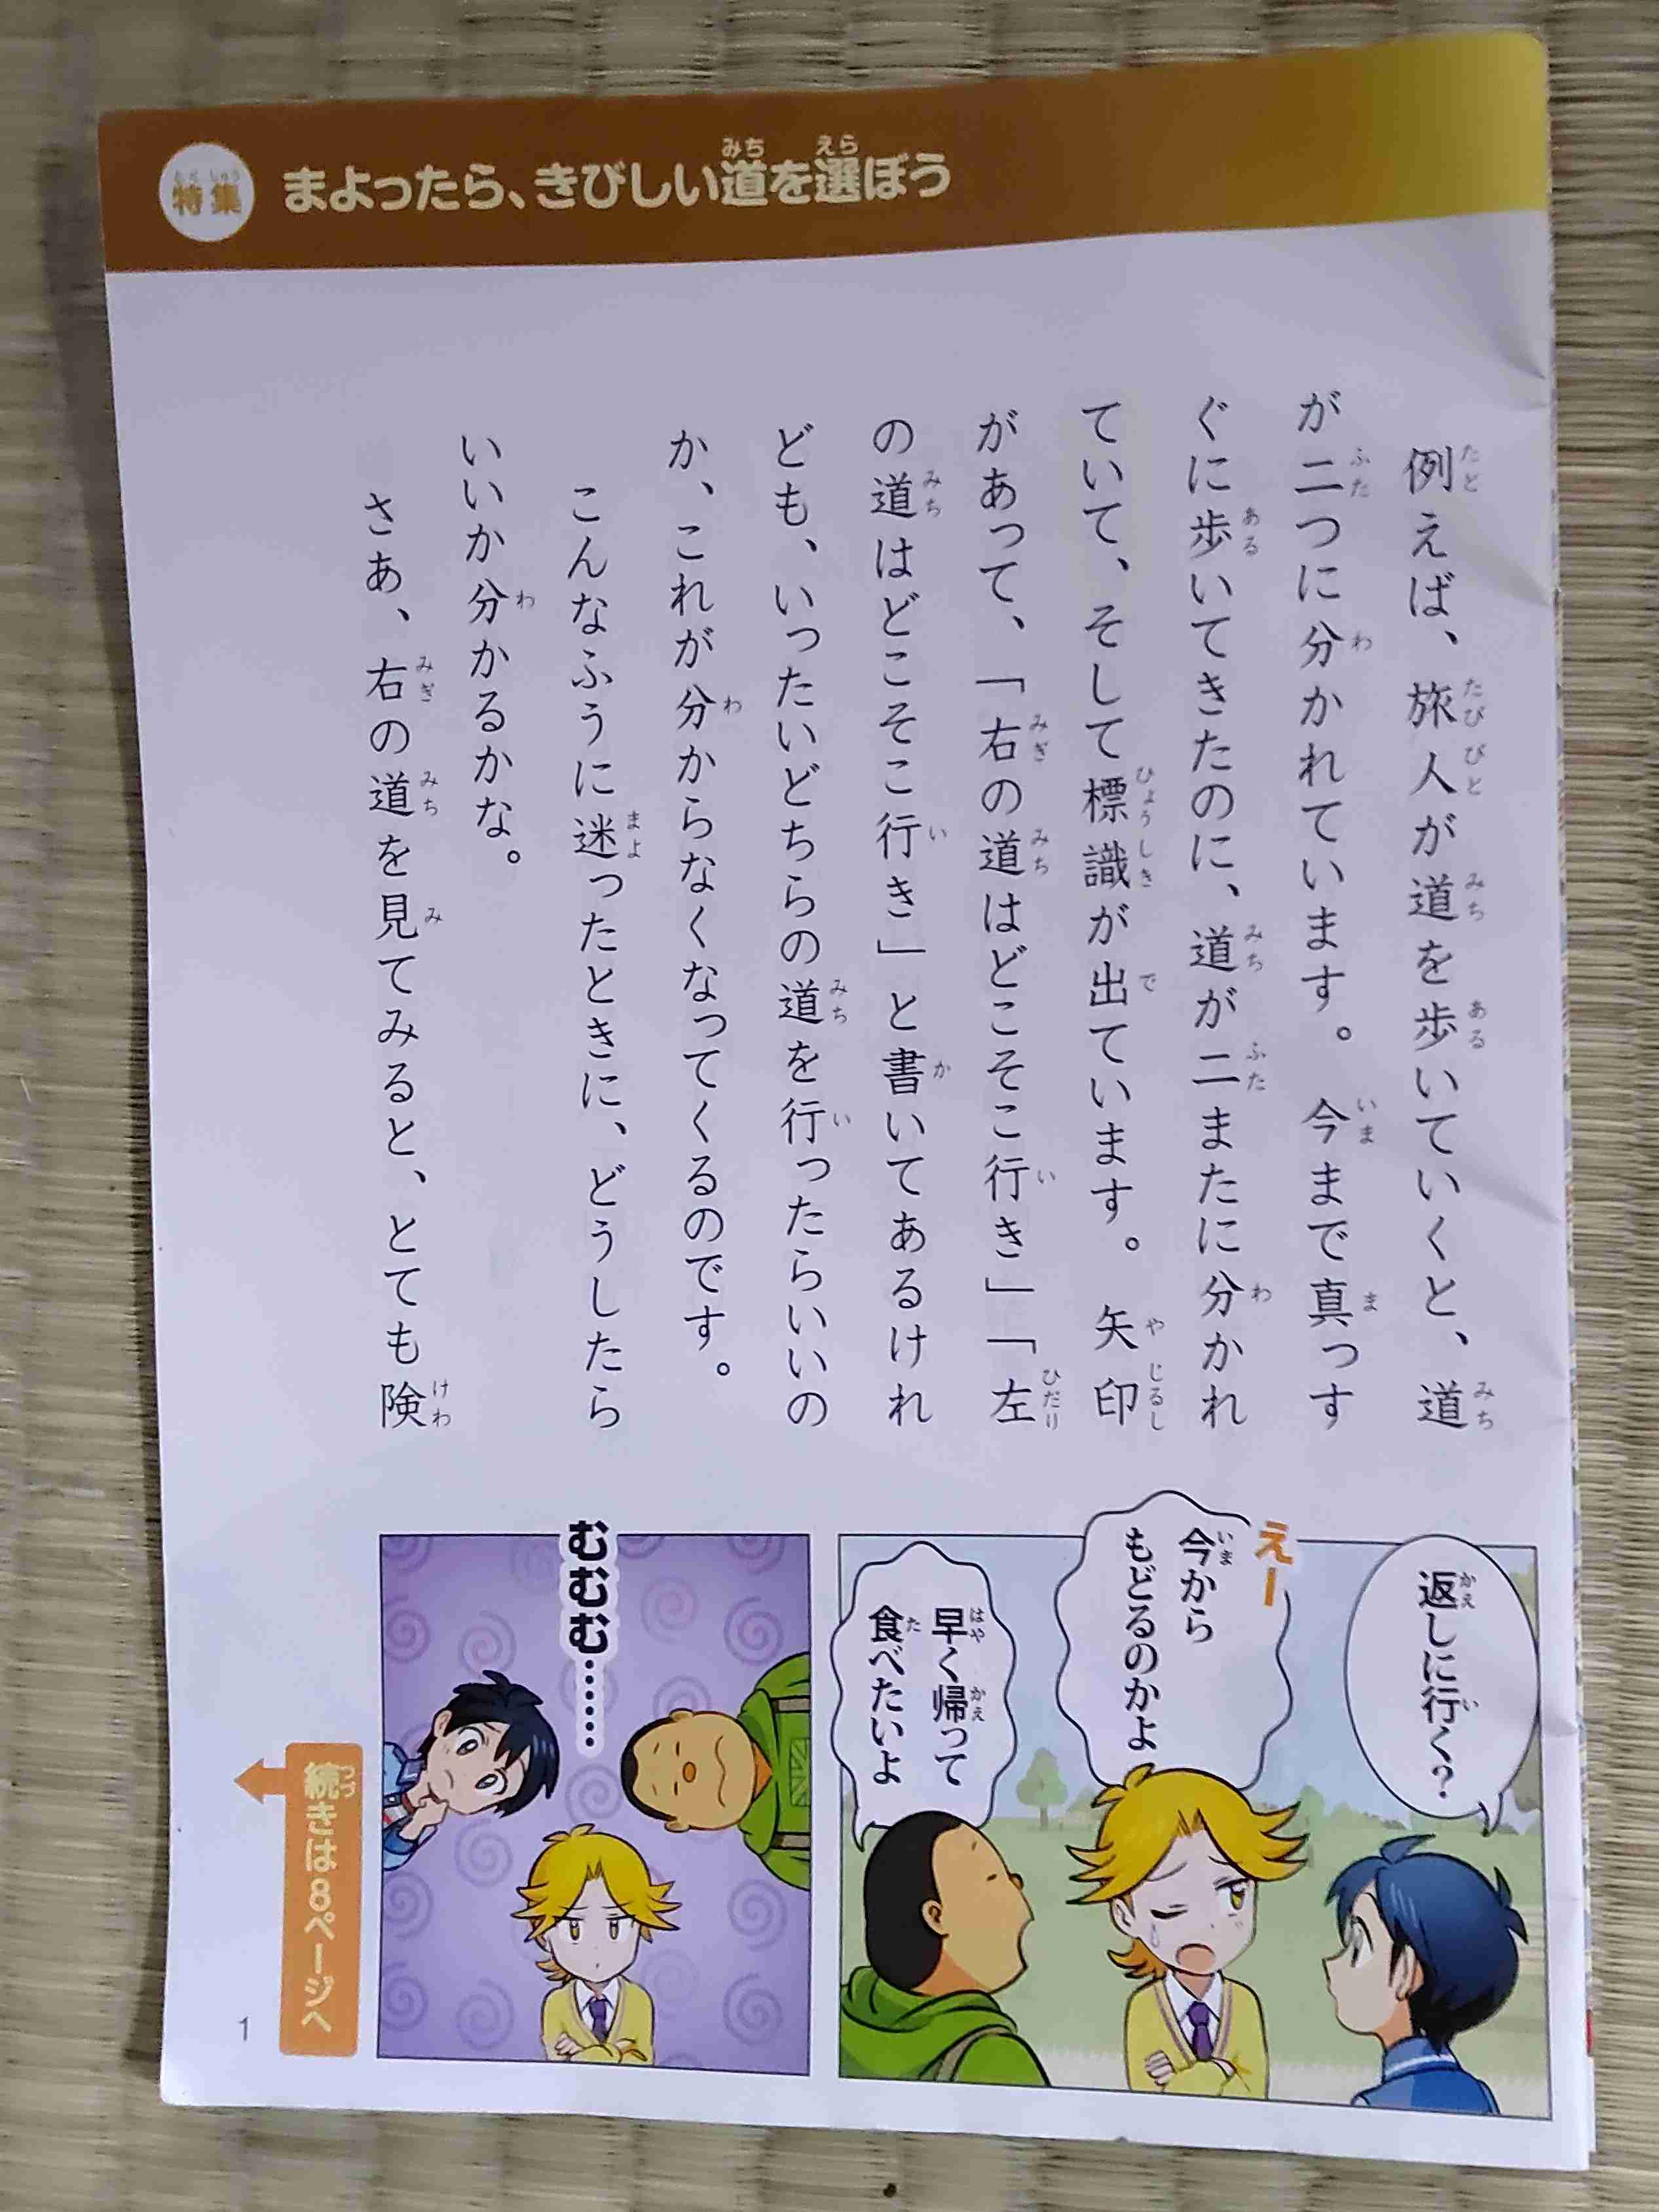 特集
まよったら、きびしい道を選ぼう
例えば、旅人が道を歩いていくと、道
が二つに分かれています。今まで真っす
ぐに歩いてきたのに、道が二またに分かれ
ていて、そして標識が出ています。矢印
があって、「右の道はどこそこ行き」「左
の道はどこそこ行き」と書いてあるけれ
ども、いったいどちらの道を行ったらいいの
か、これが分からなくなってくるのです。
こんなふうに迷ったときに、どうしたら
いいか分かるかな。
さあ、右の道を見てみると、とても険
返しに行く?
えー
今から
もどるのかよ
早く帰って
食べたいよ
むむむ……
続きは8ページへ
1